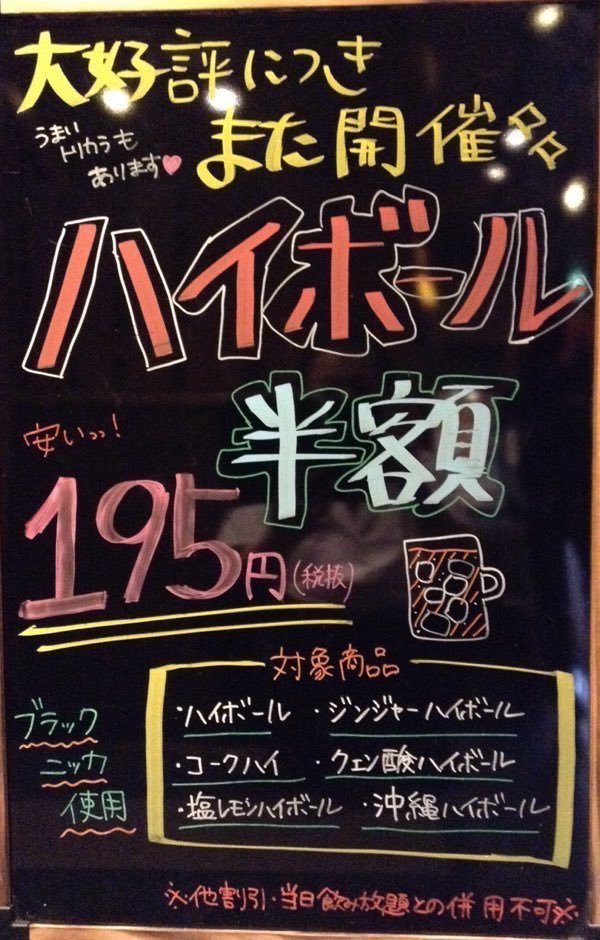 大好評につき
また開催
うまい
トリカラも
あります♥
ハイボール
半額
安いっっ!
195円(税抜)
対象商品
・ハイボール ・ジンジャーハイボール
・コークハイ ・クエン酸ハイボール
・塩レモンハイボール ・沖縄ハイボール
ブラック
ニッカ
使用
※他割引・当日飲み放題との併用不可※